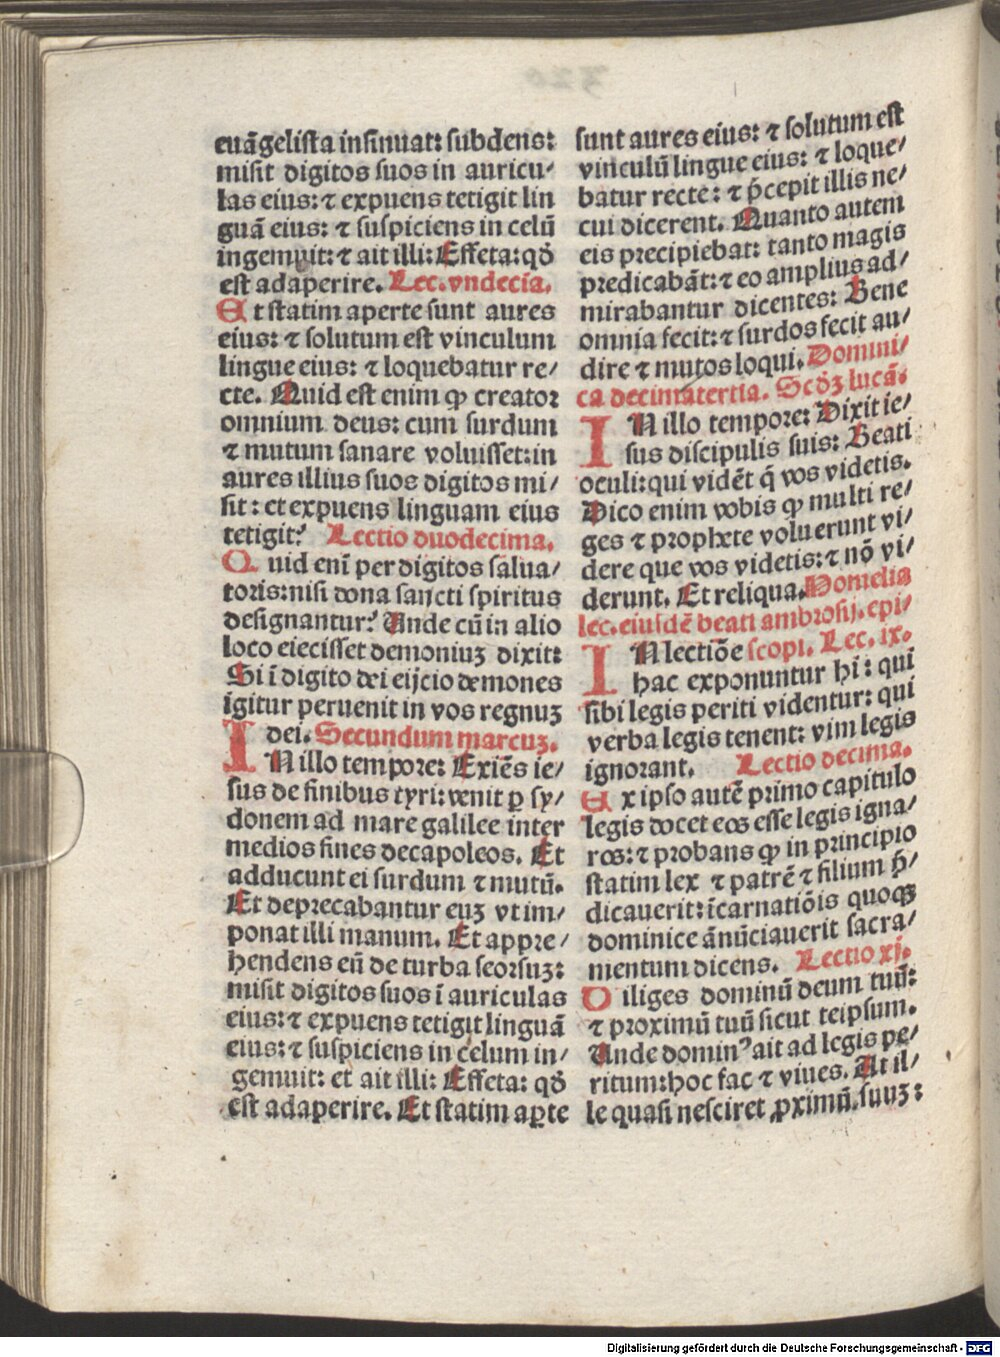 euāgelista insinuat: subdens:
misit digitos suos in auricu/
las eius: ⁊ expuens tetigit lin
guā eius: ⁊ suspiciens in celū
ingemuit: ⁊ ait illi: Effeta: qđ
est adaperire. Lec. vndecia.
Et statim aperte sunt aures
eius: ⁊ solutum est vinculum
lingue eius: ⁊ loquebatur re/
cte. Quid est enim ꝙ creator
omnium deus: cum surdum
⁊ mutum sanare voluisset: in
aures illius suos digitos mi/
sit: et expuens linguam eius
tetigit? Lectio duodecima.
Quid eni̅ per digitos salua/
toris: nisi dona sancti spiritus
designantur? Unde cū in alio
loco eiecisset demoniuꝫ dixit:
Si ī digito dei eijcio demones
igitur peruenit in vos regnuꝫ
dei. Secundum marcuꝫ.
IN illo tempore: Exiēs ie/
sus de finibus tyri: venit ꝑ sy/
donem ad mare galilee inter
medios fines decapoleos. Et
adducunt ei surdum ⁊ mutū.
Et deprecabantur euꝫ vt im/
ponat illi manum. Et appre/
hendens eū de turba seorsuꝫ:
misit digitos suos ī auriculas
eius: ⁊ expuens tetigit linguā
eius: ⁊ suspiciens in celum in/
gemuit: et ait illi: Effeta: qđ
est adaperire. Et statim aꝑte
sunt aures eius: ⁊ solutum est
vinculū lingue eius: ⁊ loque/
batur recte: ⁊ p̄cepit illis ne/
cui dicerent. Quanto autem
eis precipiebat: tanto magis
predicabāt: ⁊ eo amplius ad/
mirabantur dicentes: Bene
omnia fecit: ⁊ surdos fecit au/
dire ⁊ mutos loqui. Domini/
ca decimatertia. Scđꝫ lucā.
IN illo tempore: Dixit ie/
sus discipulis suis: Beati
oculi: qui vidēt q̄ vos videtis.
Dico enim vobis ꝙ multi re/
ges ⁊ prophete voluerunt vi/
dere que vos videtis: ⁊ nō vi/
derunt. Et reliqua. Homelia
lec. eiusdē beati ambrosij. epi/
IN lectiōe scopi. Lec. ix.
hac exponuntur hi̅: qui
sibi legis periti videntur: qui
verba legis tenent: vim legis
ignorant. Lectio decima.
Ex ipso autē primo capitulo
legis docet eos esse legis igna/
ros: ⁊ probans ꝙ in principio
statim lex ⁊ patrē ⁊ filium p̄/
dicauerit: īcarnatiōis quoqꝫ
dominice ānūciauerit sacra/
mentum dicens. Lectio xj.
Diliges dominū deum tuū:
⁊ proximū tuū sicut teipsum.
Unde dominꝰ ait ad legis pe/
ritum: hoc fac ⁊ viues. At il/
le quasi nesciret ꝓximū suuꝫ:
Digitalisierung gefördert durch die Deutsche Forschungsgemeinschaft - DFG